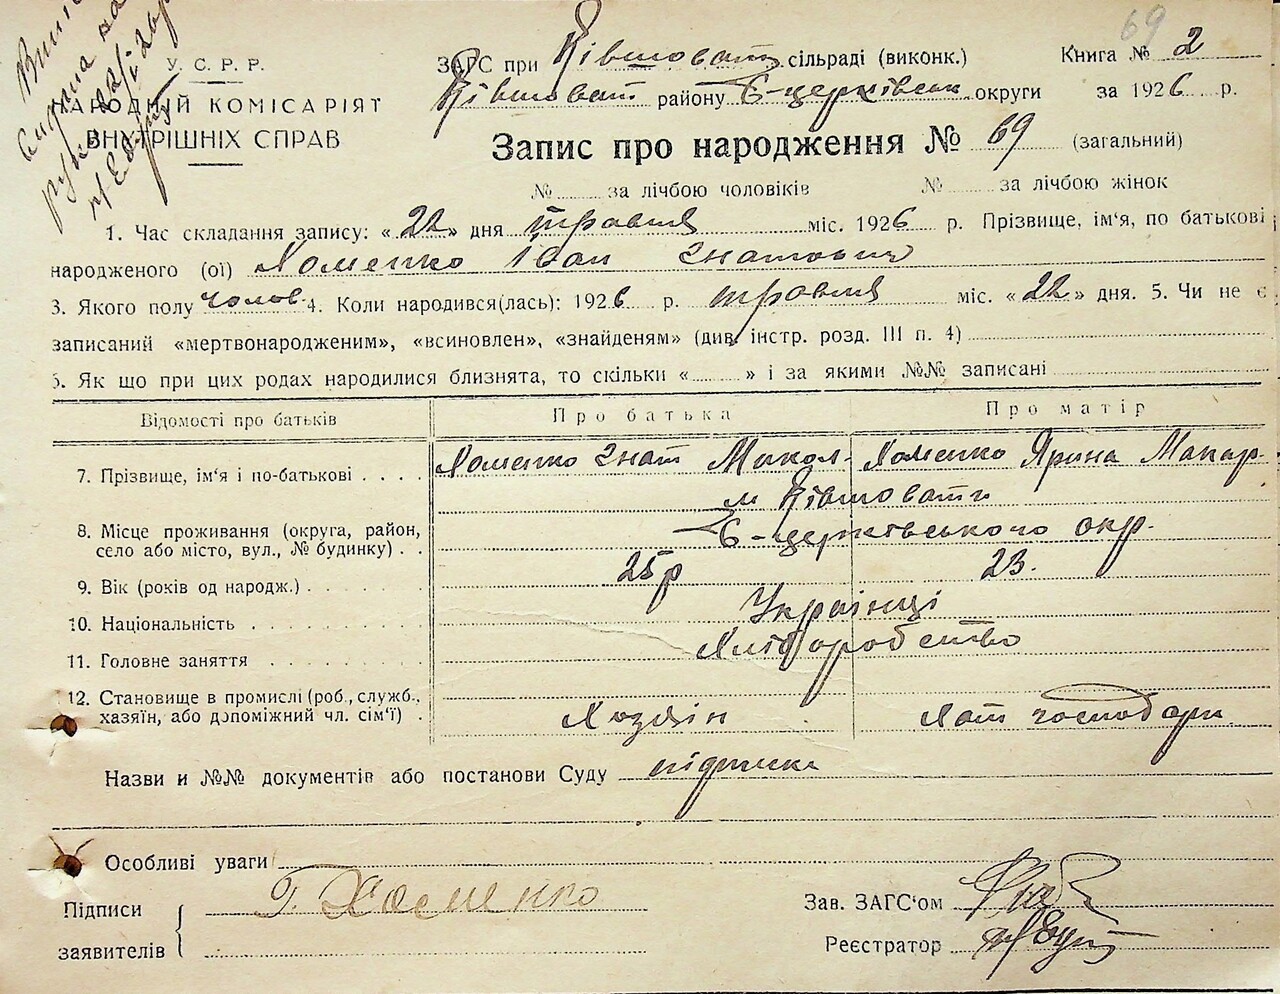 69
У. С. Р. Р.
НАРОДНИЙ КОМІСАРІЯТ
ВНУТРІШНІХ СПРАВ
ЗАГС при Ківшоват. сільраді (виконк.)
Книга № 2
Ківшоват району Б-церківськ. округи за 1926 р.
Запис про народження № 69 (загальний)
№ за лічбою чоловіків № за лічбою жінок
1. Час складання запису: « 22 » дня травня міс. 1926 р. Прізвище, ім'я, по батькові
народженого (ої) Хоменко Іван Гнатович
3. Якого полу чолов. 4. Коли народився(лась): 1926 р. травня міс. « 22 » дня. 5. Чи не є
записаний «мертвонародженим», «всиновлен», «знайденям» (див. інстр. розд. III п. 4)
6. Як що при цих родах народилися близнята, то скільки « » і за якими №№ записані
Відомості про батьків Про батька Про матір
7. Прізвище, ім'я і по-батькові . . . . Хоменко Гнат Микол. Хоменко Ярина Макар.
м Ківшовати
8. Місце проживання (округа, район, село або місто, вул., № будинку) . . Б-церківського окр.
9. Вік (років од народж.) 25 р 23.
10. Національність Українці
11. Головне заняття Хліборобство
12. Становище в промислі (роб., служб., хазяїн, або допоміжний чл. сім'ї) . Хозяїн Хат господарк
Назви и №№ документів або постанови Суду підписка
Особливі уваги
Підписи
заявителів
Г. Хоменко
Зав. ЗАГС'ом
Реєстратор